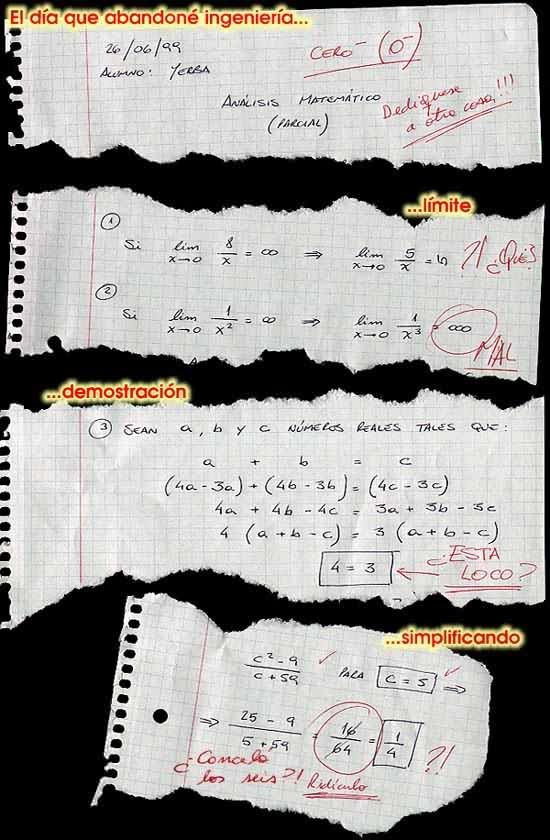 El día que abandoné ingeniería...
26/06/99
ALUMNO: YERBA
CERO⁻ (0⁻)
ANÁLISIS MATEMÁTICO
(PARCIAL)
Dedíquese
a otra cosa!!!
...límite
1
Si lim x→0 8/x = ∞ ⇒ lim x→0 5/x = ഗ ?! ¿Qué?
2
Si lim x→0 1/x² = ∞ ⇒ lim x→0 1/x³ = ∞∞
MAL
...demostración
3 SEAN a, b Y c NÚMEROS REALES TALES QUE:
a + b = c
(4a-3a)+(4b-3b)=(4c-3c)
4a + 4b - 4c = 3a + 3b - 3c
4 (a+b-c) = 3 (a+b-c)
4 = 3 ← ¿ESTA
LOCO?
...simplificando
c²-9 / c+59 ✓ PARA c = 5 ✓ ⇒
⇒ 25-9 / 5+59 = 16/64 = 1/4 ?!
¿Canceló
los seis?! Ridículo